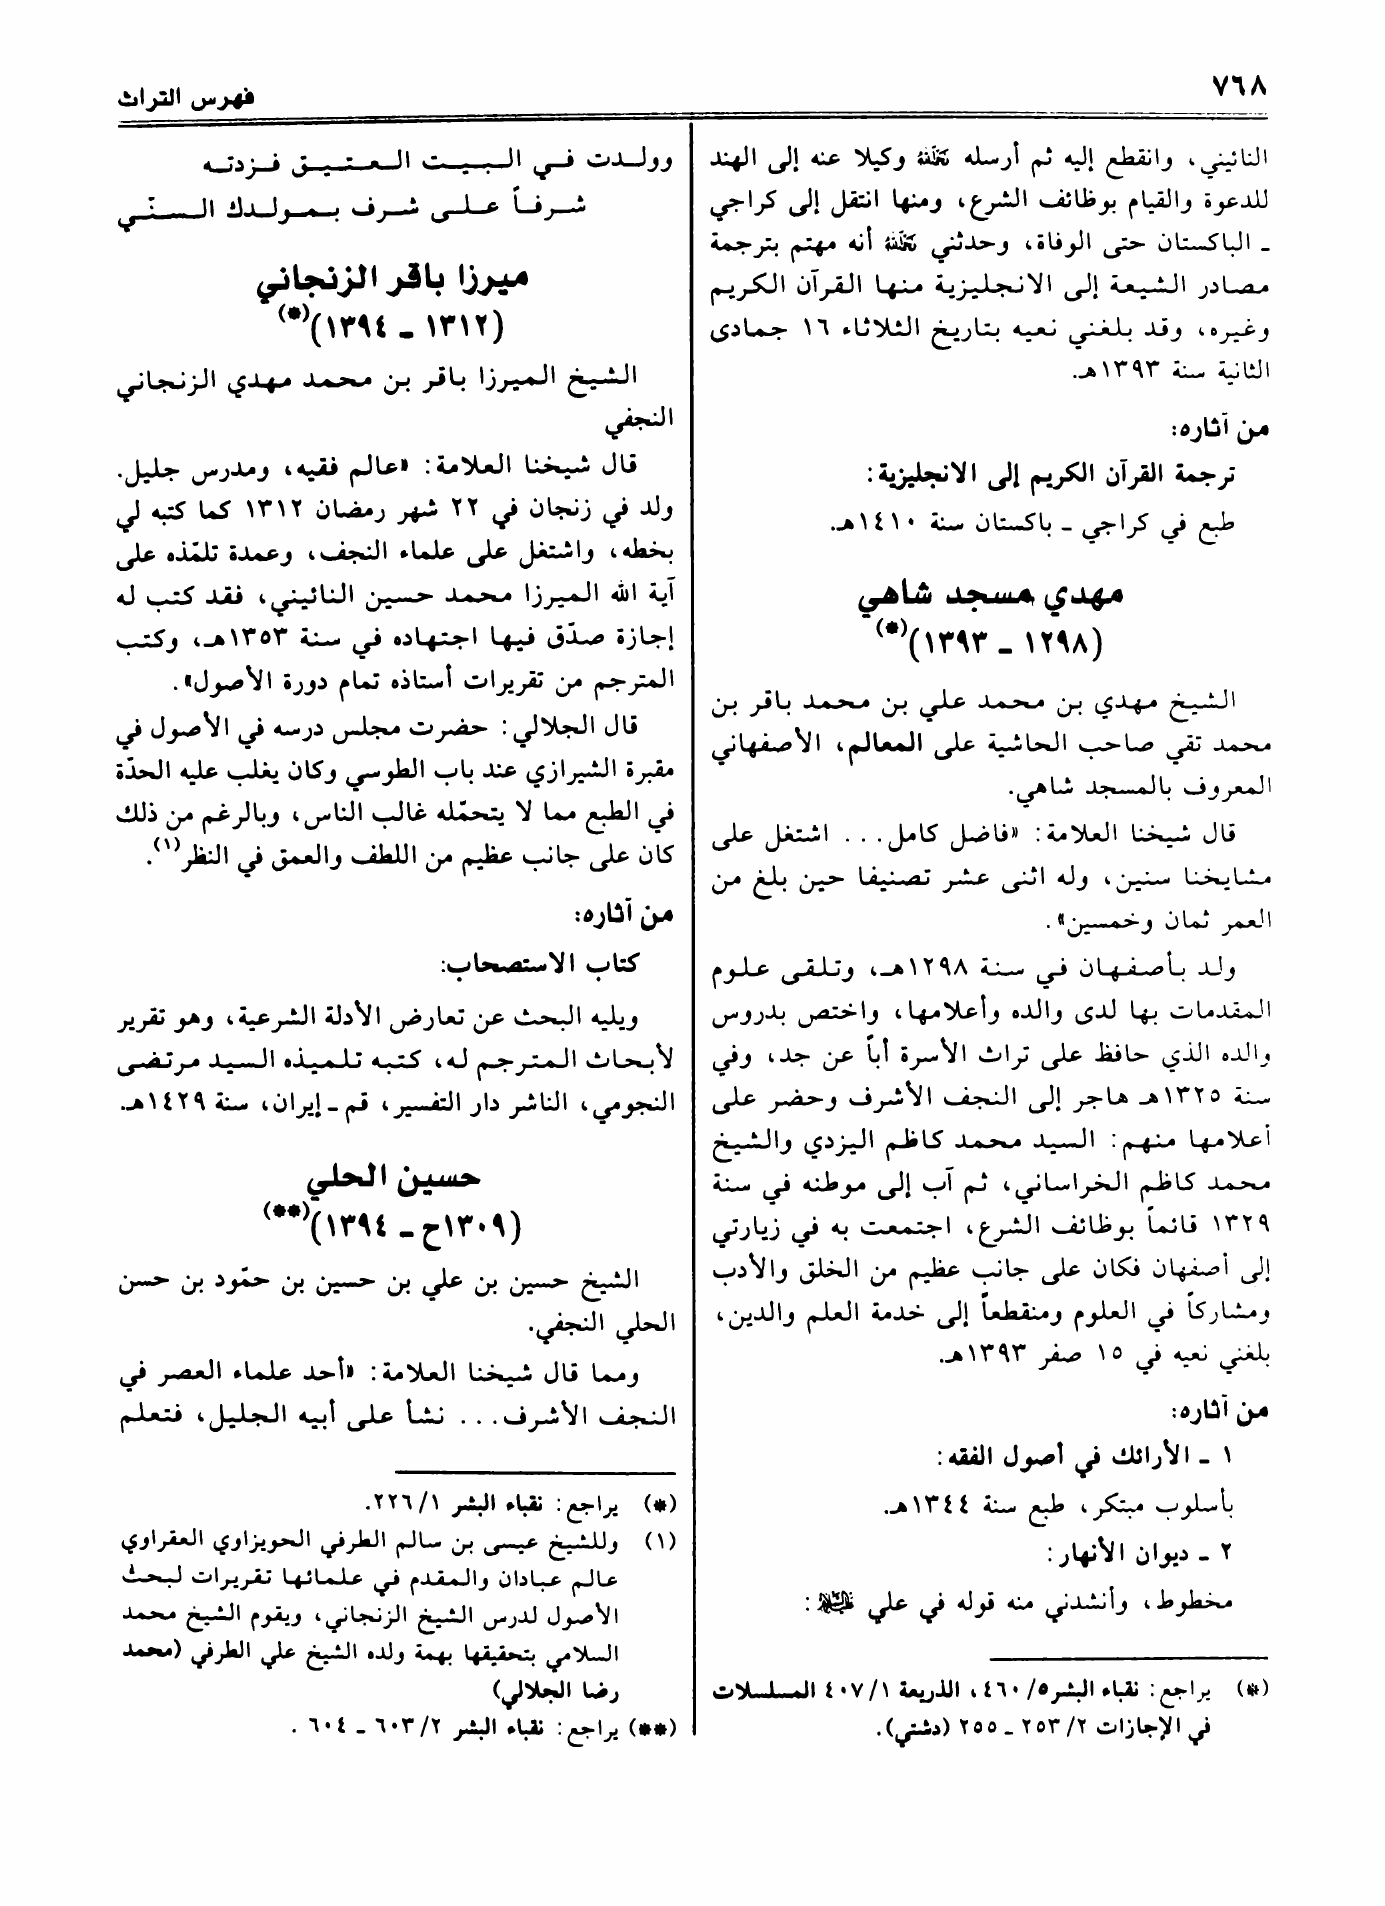 ٧٦٨
فهرس التراث
النائيني، وانقطع إليه ثم أرسله رحمه الله وكيلا عنه إلى الهند
للدعوة والقيام بوظائف الشرع، ومنها انتقل إلى كراجي
ـ الباكستان حتى الوفاة، وحدثني رحمه الله أنه مهتم بترجمة
مصادر الشيعة إلى الانجليزية منها القرآن الكريم
وغيره، وقد بلغني نعيه بتاريخ الثلاثاء ١٦ جمادى
الثانية سنة ١٣٩٣هـ.
من آثاره:
ترجمة القرآن الكريم إلى الانجليزية:
طبع في كراجي ـ باكستان سنة ١٤١٠هـ.
مهدي مسجد شاهي
(١٢٩٨ ـ ١٣٩٣)(*)
الشيخ مهدي بن محمد علي بن محمد باقر بن
محمد تقي صاحب الحاشية على المعالم، الأصفهاني
المعروف بالمسجد شاهي.
قال شيخنا العلامة: «فاضل كامل... اشتغل على
مشايخنا سنين، وله اثنى عشر تصنيفا حين بلغ من
العمر ثمان وخمسين».
ولد بأصفهان في سنة ١٢٩٨هـ، وتلقى علوم
المقدمات بها لدى والده وأعلامها، واختص بدروس
والده الذي حافظ على تراث الأسرة أباً عن جد، وفي
سنة ١٣٢٥هـ هاجر إلى النجف الأشرف وحضر على
أعلامها منهم: السيد محمد كاظم اليزدي والشيخ
محمد كاظم الخراساني، ثم آب إلى موطنه في سنة
١٣٢٩ قائماً بوظائف الشرع، اجتمعت به في زيارتي
إلى أصفهان فكان على جانب عظيم من الخلق والأدب
ومشاركاً في العلوم ومنقطعاً إلى خدمة العلم والدين،
بلغني نعيه في ١٥ صفر ١٣٩٣هـ.
من آثاره:
١ ـ الأرائك في أصول الفقه:
بأسلوب مبتكر، طبع سنة ١٣٤٤هـ.
٢ ـ ديوان الأنهار:
مخطوط، وأنشدني منه قوله في علي عليه السلام:
(*) يراجع: نقباء البشر٥/ ٤٦٠، الذريعة ١/ ٤٠٧ المسلسلات
في الإجازات ٢/ ٢٥٣ ـ ٢٥٥ (دشتي).
وولدت في البيت العتيق فزدته
شرفاً على شرف بمولدك السنّي
ميرزا باقر الزنجاني
(١٣١٢ ـ ١٣٩٤)(*)
الشيخ الميرزا باقر بن محمد مهدي الزنجاني
النجفي
قال شيخنا العلامة: «عالم فقيه، ومدرس جليل.
ولد في زنجان في ٢٢ شهر رمضان ١٣١٢ كما كتبه لي
بخطه، واشتغل على علماء النجف، وعمدة تلمّذه على
آية الله الميرزا محمد حسين النائيني، فقد كتب له
إجازة صدّق فيها اجتهاده في سنة ١٣٥٣هـ، وكتب
المترجم من تقريرات أستاذه تمام دورة الأصول».
قال الجلالي: حضرت مجلس درسه في الأصول في
مقبرة الشيرازي عند باب الطوسي وكان يغلب عليه الحدّة
في الطبع مما لا يتحمّله غالب الناس، وبالرغم من ذلك
كان على جانب عظيم من اللطف والعمق في النظر(١).
من آثاره:
كتاب الاستصحاب:
ويليه البحث عن تعارض الأدلة الشرعية، وهو تقرير
لأبحاث المترجم له، كتبه تلميذه السيد مرتضى
النجومي، الناشر دار التفسير، قم ـ إيران، سنة ١٤٢٩هـ.
حسين الحلي
(١٣٠٩ح ـ ١٣٩٤)(**)
الشيخ حسين بن علي بن حسين بن حمّود بن حسن
الحلي النجفي.
ومما قال شيخنا العلامة: «أحد علماء العصر في
النجف الأشرف... نشأ على أبيه الجليل، فتعلم
(*) يراجع: نقباء البشر ١/ ٢٢٦.
(١) وللشيخ عيسى بن سالم الطرفي الحويزاوي العقراوي
عالم عبادان والمقدم في علمائها تقريرات لبحث
الأصول لدرس الشيخ الزنجاني، ويقوم الشيخ محمد
السلامي بتحقيقها بهمة ولده الشيخ علي الطرفي (محمد
رضا الجلالي)
(**) يراجع: نقباء البشر ٢/ ٦٠٣ ـ ٦٠٤.